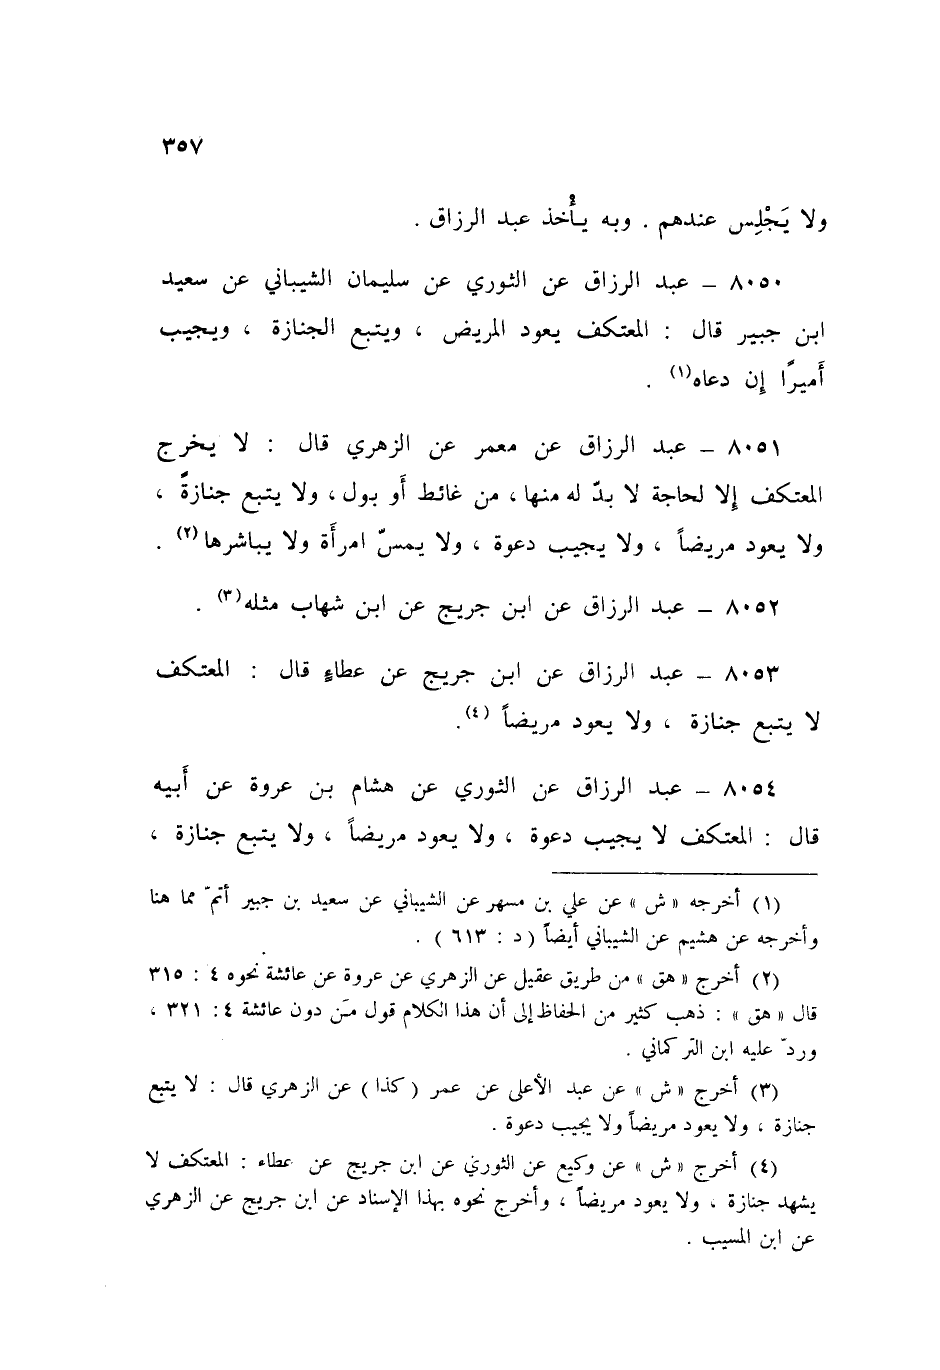 ٣٥٧
ولا يَجْلِس عندهم . وبه يأُخذ عبد الرزاق .
٨٠٥٠ – عبد الرزاق عن الثوري عن سليمان الشيباني عن سعيد
ابن جبير قال : المعتكف يعود المريض ، ويتبع الجنازة ، ويجيب
أَميرًا إِن دعاه(١) .
٨٠٥١ – عبد الرزاق عن معمر عن الزهري قال : لا يخرج
المعتكف إِلا لحاجة لا بدّ له منها، من غائط أَو بول، ولا يتبع جنازةً ،
ولا يعود مريضاً ، ولا يجيب دعوة ، ولا يمسّ امرأَة ولا يباشرها(٢) .
٨٠٥٢ – عبد الرزاق عن ابن جريج عن ابن شهاب مثله(٣) .
٨٠٥٣ – عبد الرزاق عن ابن جريج عن عطاءٍ قال : المعتكف
لا يتبع جنازة ، ولا يعود مريضاً (٤).
٨٠٥٤ – عبد الرزاق عن الثوري عن هشام بن عروة عن أَبيه
قال : المعتكف لا يجيب دعوة ، ولا يعود مريضاً ، ولا يتبع جنازة ،
(١) أخرجه «ش» عن علي بن مسهر عن الشيباني عن سعيد بن جبير أتمّ مما هنا
وأخرجه عن هشيم عن الشيباني أيضاً ( د : ٦١٣ ) .
(٢) أخرج «هق» من طريق عقيل عن الزهري عن عروة عن عائشة نحوه ٤ : ٣١٥
قال «هق» : ذهب كثير من الحفاظ إلى أن هذا الكلام قول مَن دون عائشة ٤ : ٣٢١ ،
وردّ عليه ابن التركماني .
(٣) أخرج «ش» عن عبد الأعلى عن عمر ( كذا ) عن الزهري قال : لا يتبع
جنازة ، ولا يعود مريضاً ولا يجيب دعوة .
(٤) أخرج «ش» عن وكيع عن الثوري عن ابن جريج عن عطاء : المعتكف لا
يشهد جنازة ، ولا يعود مريضاً ، وأخرج نحوه بهذا الإسناد عن ابن جريج عن الزهري
عن ابن المسيب .